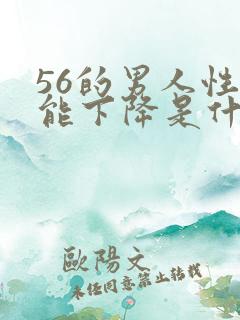 56的男人性
能下降是什
歐陽文
未任同意禁止转载